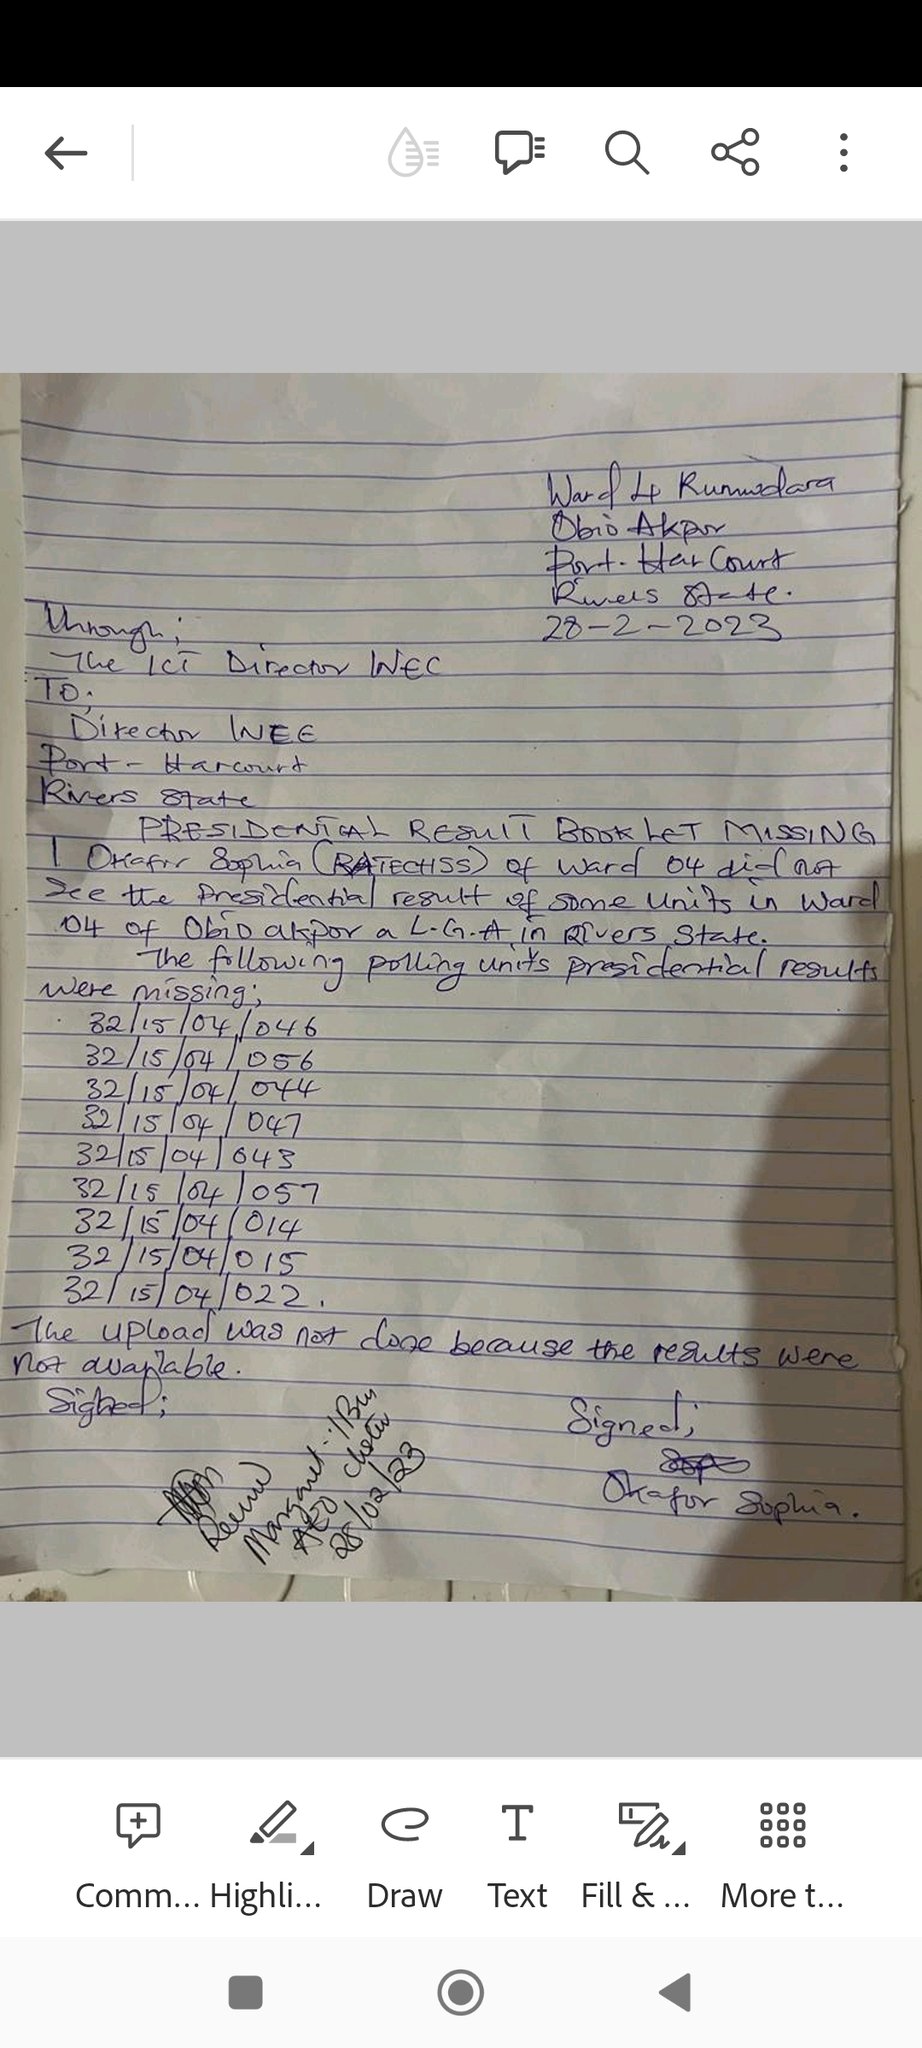 Ward 4 Rumuodara
Obio Akpor
Port-Harcourt
Rivers State.
28-2-2023
Through;
The ICT Director INEC
TO;
Director INEC
Port-Harcourt
Rivers State
PRESIDENTIAL RESULT BOOKLET MISSING
I Okafor Sophia (RATECHSS) of Ward 04 did not
see the Presidential result of some units in Ward
04 of Obio akpor a L.G.A in Rivers State.
The following polling units presidential results
were missing;
32/15/04/046
32/15/04/056
32/15/04/044
32/15/04/047
32/15/04/043
32/15/04/057
32/15/04/014
32/15/04/015
32/15/04/022.
The upload was not done because the results were
not available.
Signed;
Margaret
28/02/23
Signed;
Okafor Sophia.
Comm... Highli... Draw Text Fill & ... More t...